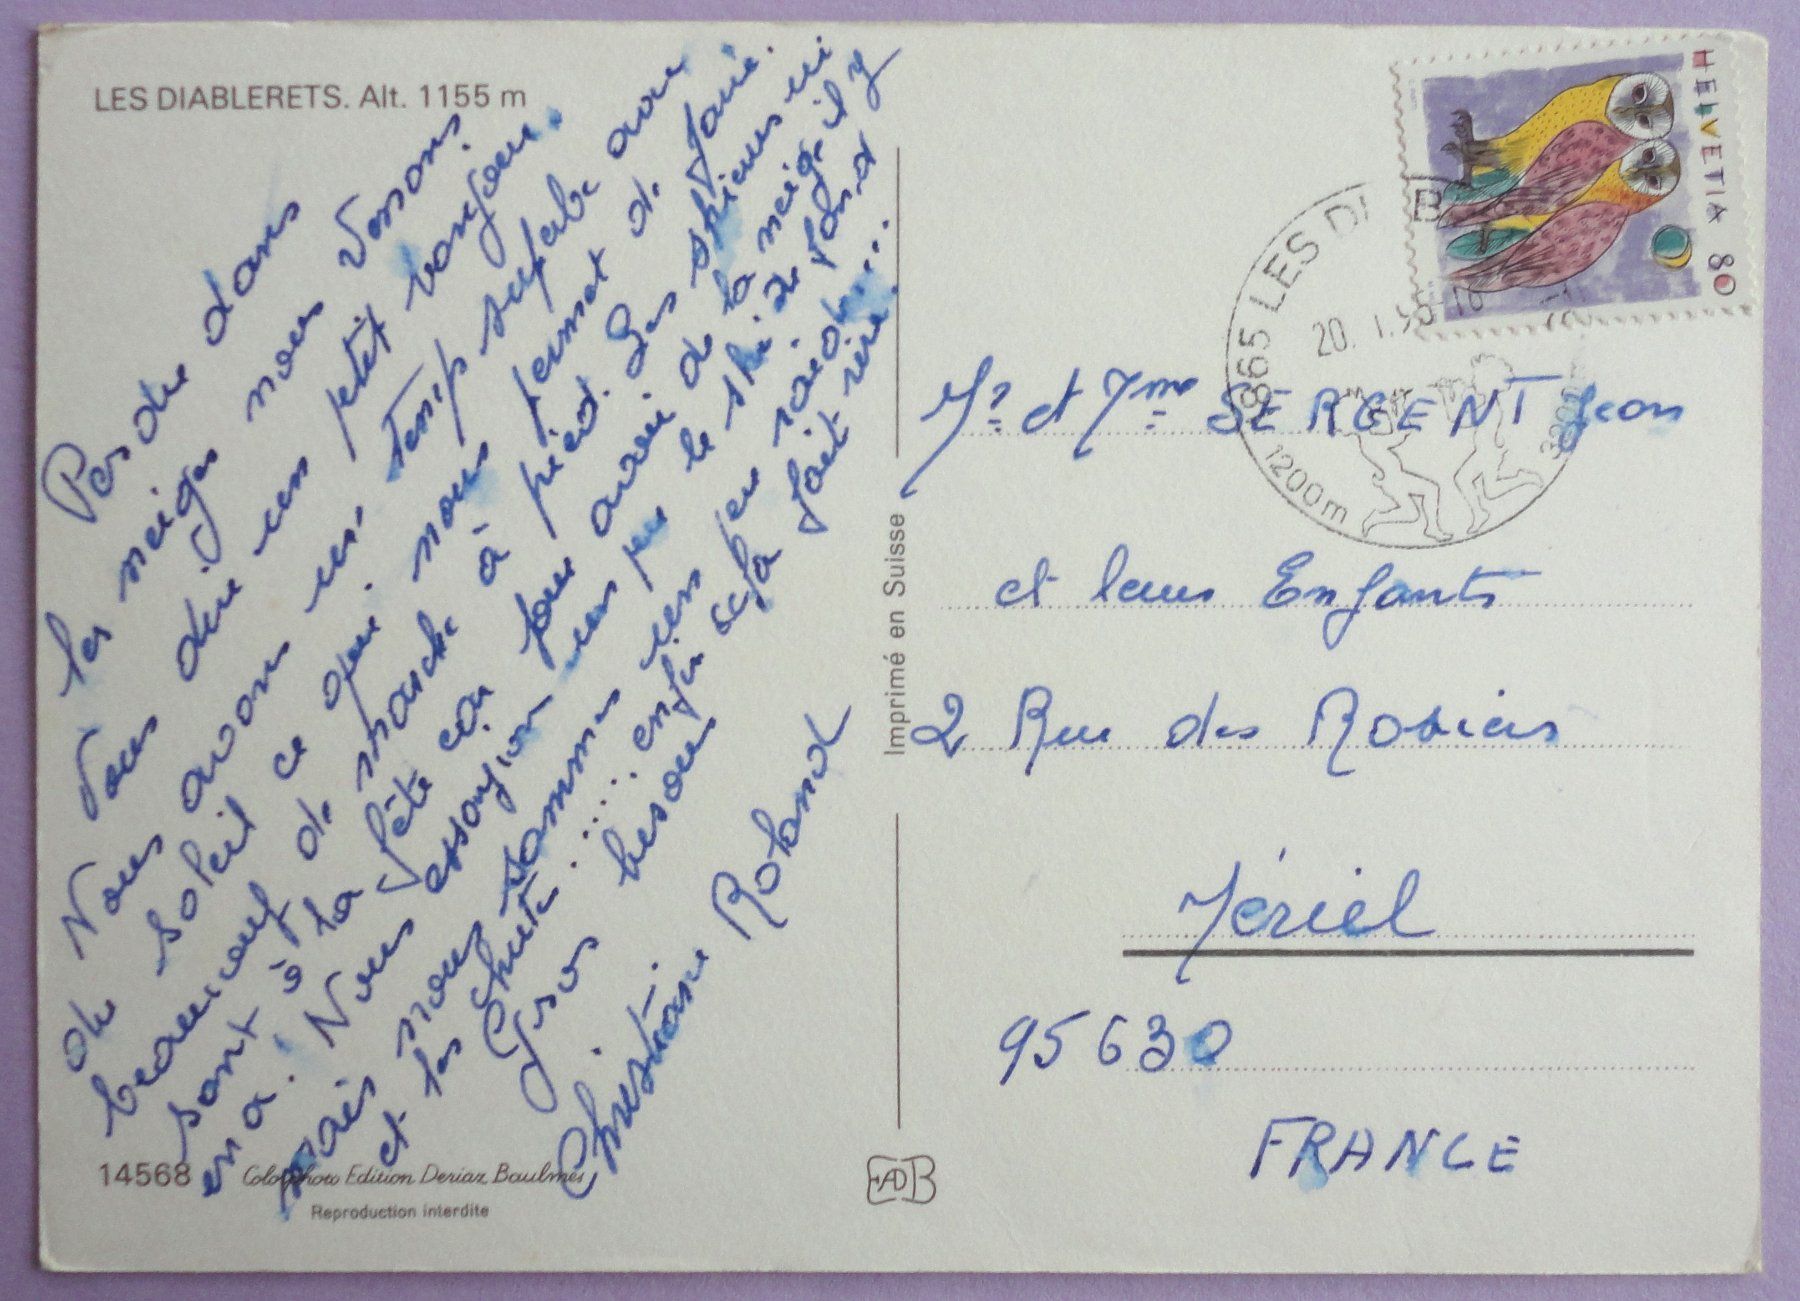 LES DIABLERETS. Alt. 1155 m
Perdue dans
les neiges nous venons
vous dire un petit bonjour.
Nous avons un temps superbe avec
du soleil ce qui nous permet de faire
beaucoup de marche à pied. Les skieurs ici
sont à la fête car pour avoir de la neige il y
en a. Nous essayion un peu le ski de fond
mais nous sommes un peu raide....
et les chute..... enfin cela fait rire.
Gros bisous
Christiane Roland
14568 Colorphoto Edition Deriaz Baulmes
Reproduction interdite
Imprimé en Suisse
EADB
HELVETIA 80
1865 LES DI
20. 1.
1200m
Mr et Mme SERGENT Jean
et leurs Enfants
2 Rue des Rosiers
Mériel
95630
FRANCE